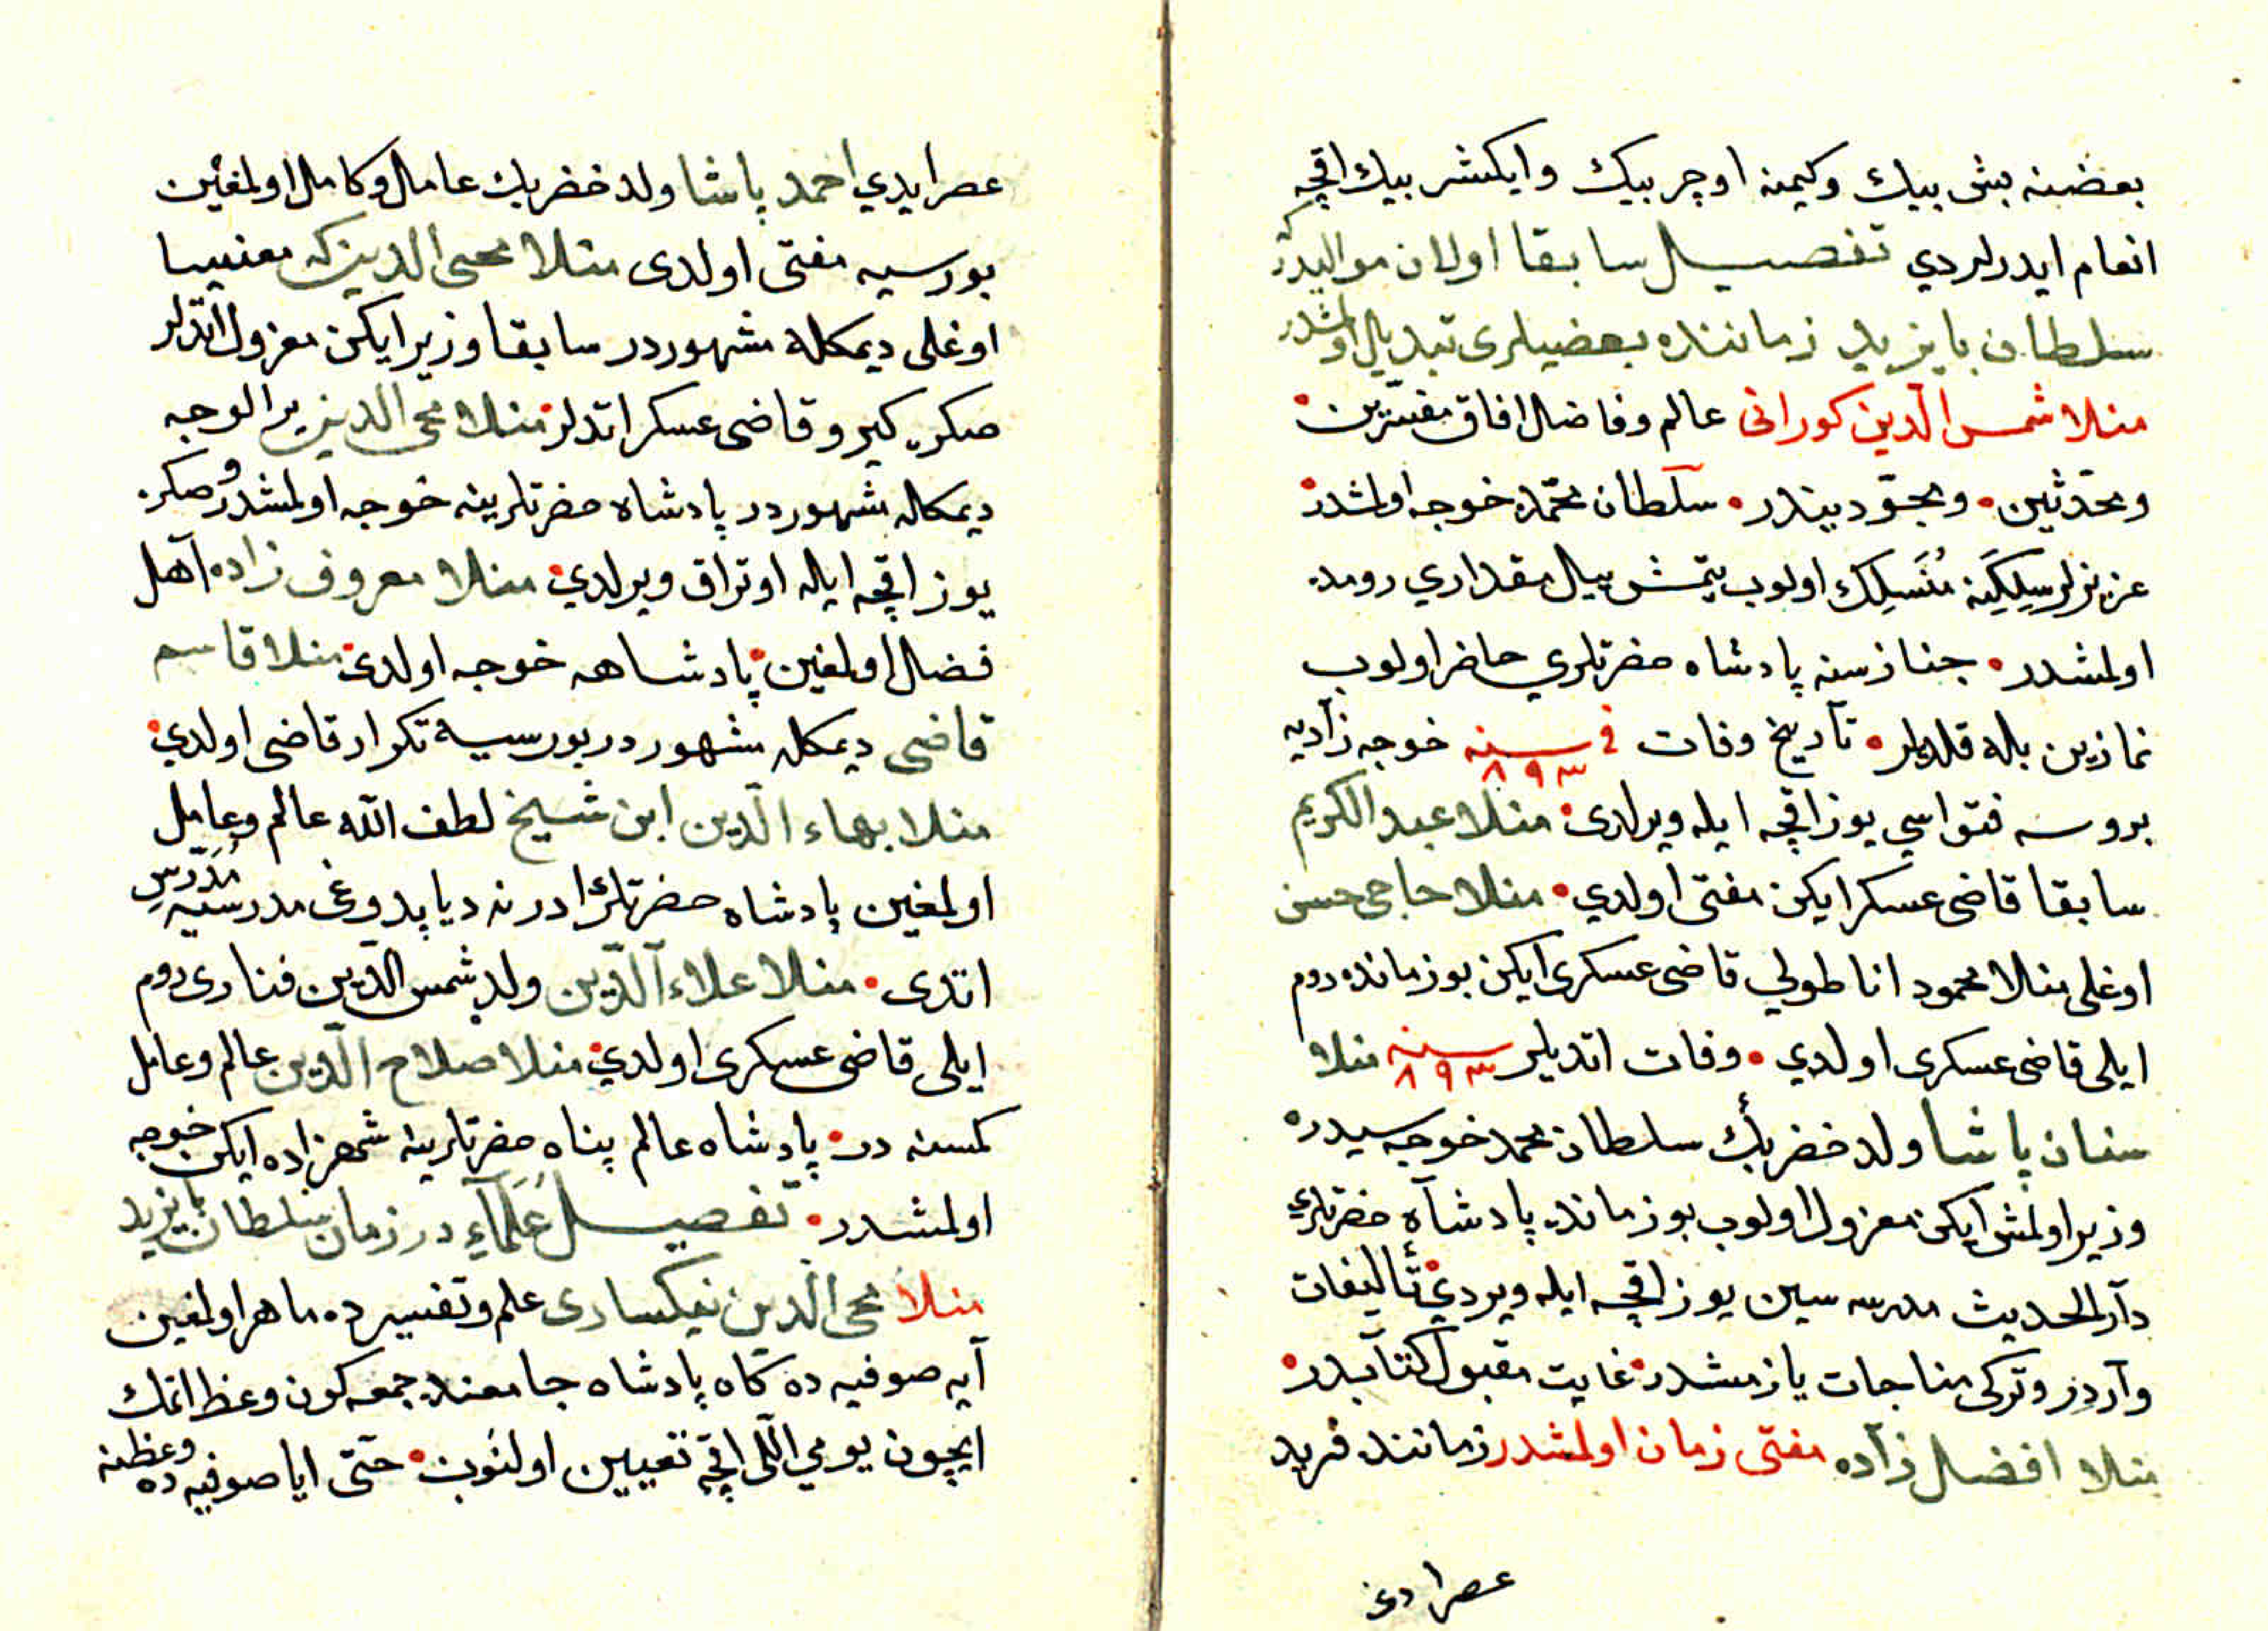 بعضنه بش بيك وكيمنه اوچر بيك وايكشر بيك اقچه
انعام ايدرلردي تفصيل سابقا اولان مواليدركه
سلطان بايزيد زماننده بعضيلرى تبديل اولمشدر
منلا شمس الدين كورانى عالم وفاضل افاق مفسّرين
ومحدّثين ومجوّد يندر سلطان محمّده خوجه اولمشدر
عزيزلر سِلكِنه مُنسَلِك اولوب يتمش ييل مقداري رومده
اولمشدر جنازسنه پادشاه حضرتلري حاضر اولوب
نمازين بله قلديلر تاريخ وفات فى سنه ٨٩٣ خوجه زاديه
بروسه فتواسي يوز اقچه ايله ويرلدى منلا عبد الكريم
سابقا قاضى عسكر ايكن مفتى اولدي منلا حاجى حسن
اوغلى منلا محمود اناطولي قاضى عسكرى ايكن بو زمانده روم
ايلى قاضى عسكرى اولدي وفات اتديلر سنه ٨٩٣ منلا
سنان پاشا ولد خضر بك سلطان محمد خوجه سيدره
وزير اولمش ايكن معزول اولوب بو زمانده پادشاه حضرتلري
دار الحديث مدرسه سين يوز اقچه ايله ويردي تأليفات
واردر وتركى مناجات يازمشدر غايت مقبول كتابدر
منلا افضل زاده مفتى زمان اولمشدر زماننده فريد
عصر ادى
عصر ايدي احمد پاشا ولد خضر بك عامل وكامل اولمغين
بورسيه مفتى اولدى منلا محيى الدين كه مغنيسا
اوغلى ديمكله مشهوردر سابقا وزير ايكن معزول اتديلر
صكره كيرو قاضى عسكر اتدلر منلا محى الدين ير الوجه
ديمكله مشهوردر پادشاه حضرتلرينه خوجه اولمشدر وصكره
يوز اقچه ايله اوتراق ويرلدي منلا معروف زاده اهل
فضل اولمغين پادشاهه خوجه اولدى منلا قاسم
قاضى ديمكله مشهور در بورسيه تكرار قاضى اولدي
منلا بهاء الدين ابن شيخ لطف الله عالم وعامل
اولمغين پادشاه حضرتلرى ادرنه ده ياپدوغى مدرسيه مُدَرّسِ
اتدى منلا علاء الدّين ولد شمس الدّين فنارى روم
ايلى قاضى عسكرى اولدي منلا صلاح الدّين عالم وعامل
كمسنه در پادشاه عالم پناه حضرتلرينه شهزاده ايكن خوجه
اولمشدر تفصيل عُلَمآءِ در زمان سلطان بايزيد
منلا محى الدين نيكسارى علم وتفسيرده ماهر اولمغين
آيه صوفيه ده گاه پادشاه جامعنده جمعه كون وعظ اتمك
ايچون يومي اللى اقچه تعيين اولنوب حتّى ايا صوفيه ده وعظنه